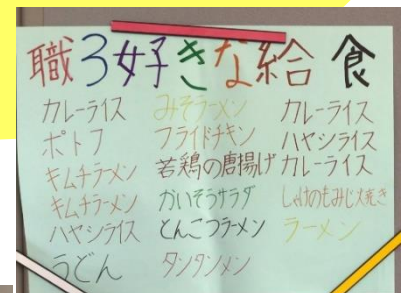 職3好きな給食
カレーライス
ポトフ
キムチラーメン
キムチラーメン
ハヤシライス
うどん
みそラーメン
フライドチキン
若鶏の唐揚げ
かいそうサラダ
とんこつラーメン
タンタンメン
カレーライス
ハヤシライス
カレーライス
しゃけのもみじ焼き
ラーメン